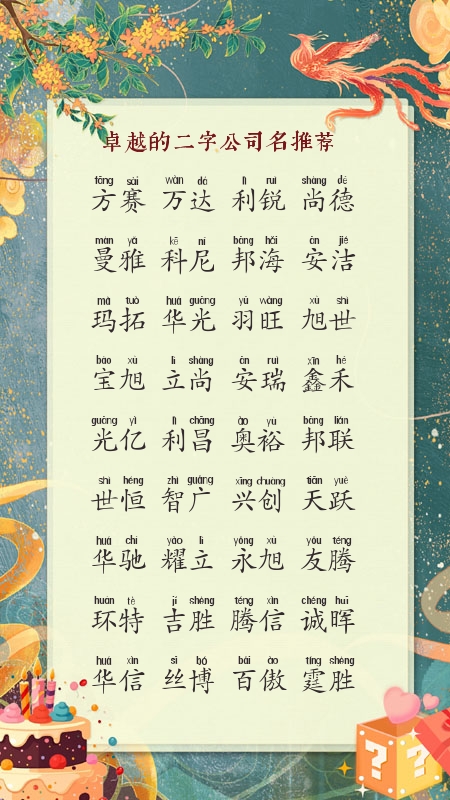 卓越的二字公司名推荐
fāng sài wàn dá lì ruì shàng dé
方赛 万达 利锐 尚德
màn yǎ kē ní bāng hǎi ān jié
曼雅 科尼 邦海 安洁
mǎ tuò huá guāng yǔ wàng xù shì
玛拓 华光 羽旺 旭世
bǎo xù lì shàng ān ruì xīn hé
宝旭 立尚 安瑞 鑫禾
guāng yì lì chāng ào yù bāng lián
光亿 利昌 奥裕 邦联
shì héng zhì guǎng xīng chuàng tiān yuè
世恒 智广 兴创 天跃
huá chí yào lì yǒng xù yǒu téng
华驰 耀立 永旭 友腾
huán tè jí shèng téng xìn chéng huī
环特 吉胜 腾信 诚晖
huá xìn sī bó bǎi ào tíng shèng
华信 丝博 百傲 霆胜
? ?